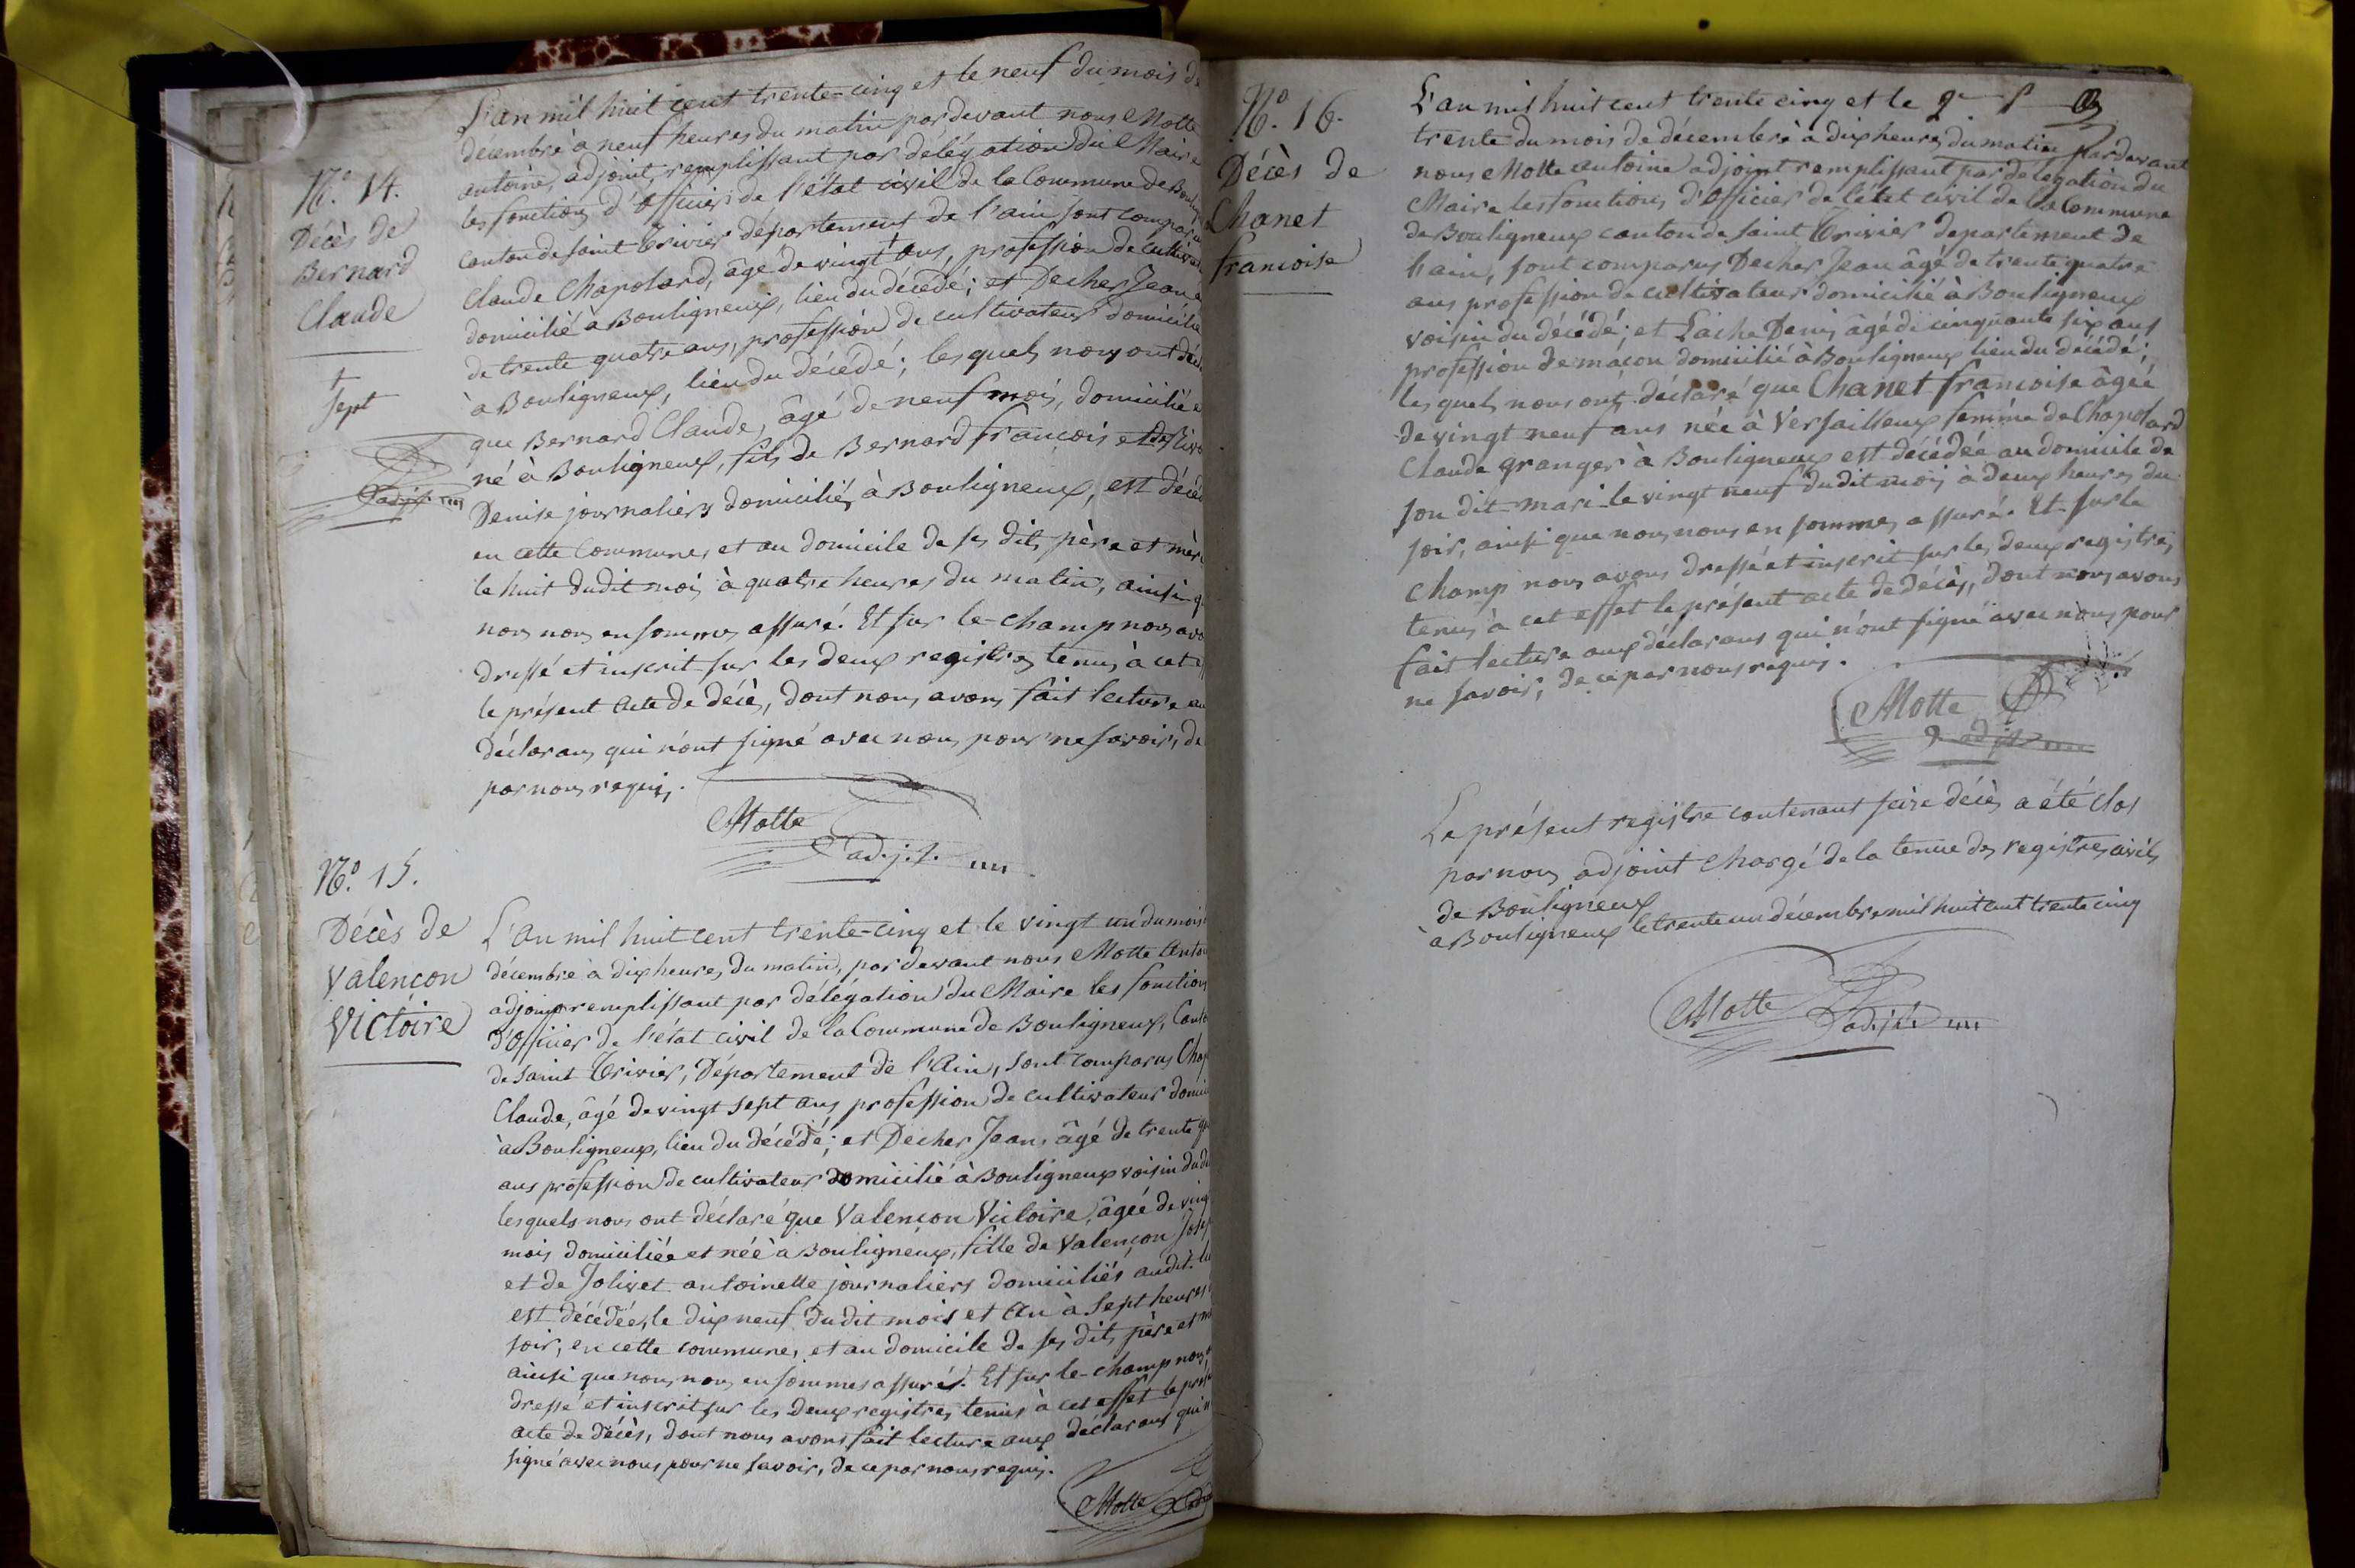 N.º 14.
Décès de
Bernard
Claude
†
sept
adjt.
L'an mil huit cent trente-cinq et le neuf du mois de
décembre à neuf heures du matin pardevant nous Motte
antoine, adjoint, remplissant par délégation du Maire
les fonctions d'Officier de l'état civil de la Commune de
canton de saint Trivier département de l'ain sont
Claude Chapolard, âgé de vingt † ans, profession de
domicilié à Bouligneux, lieu du décédé; et Decher Jean
de trente quatre ans, profession de cultivateur domicilié
à Bouligneux, lieu du décédé; lesquels nous ont
que Bernard Claude, âgé de neuf mois, domicilié
né à Bouligneux, fils de Bernard françois et de
Denise journaliers domiciliés à Bouligneux, est
en cette commune, et au domicile de ses dits père et
le huit dudit mois à quatre heures du matin, ainsi
nous nous en sommes assuré. Et sur le-champ nous
dressé et inscrit sur les deux registres tenus à cet
le présent acte de décès, dont nous avons fait lecture
déclarans qui n'ont signé avec nous pour ne savoir, de
par nous requis.
Motte
adjt.
N.º 15.
Décès de
Valençon
Victoire
L'an mil huit cent trente-cinq et le vingt un du mois
décembre à dix heures du matin, par devant nous Motte
adjoint remplissant par délégation du Maire les fonctions
d'Officier de l'état civil de la Commune de Bouligneux,
de saint Trivier, Département de l'Ain, sont comparus
Claude, âgé de vingt sept ans profession de cultivateur
à Bouligneux, lieu du décédé; et Decher Jean, âgé de trente
ans profession de cultivateur domicilié à Bouligneux voisin
lesquels nous ont déclaré que Valençon Victoire, âgée de
mois domiciliée et née à Bouligneux, fille de Valençon
et de Jolivet antoinette journaliers domiciliés audit
est décédée, le dix neuf dudit mois et an à sept heures
soir, en cette commune, et au domicile de ses dits père et
ainsi que nous nous en sommes assurés. Et sur le-champ nous
dressé et inscrit sur les deux registres tenus à cet effet le
acte de décès, dont nous avons fait lecture aux déclarans qui
signé avec nous pour ne savoir, de ce par nous requis.
Motte
N.º 16.
Décès de
Chanet
francoise
L'an mil huit cent trente cinq et le
trente du mois de décembre à dix heures du matin pardevant
nous Motte antoine adjoint remplissant par délégation du
Maire les fonctions d'Officier de l'état civil de la Commune
de Bouligneux canton de saint Trivier département de
l'ain, sont comparus Decher Jean âgé de trente quatre
ans profession de cultivateur domicilié à Bouligneux
voisin du décédé; et Laiche Denis âgé de cinquante six ans
profession de maçon domicilié à Bouligneux lieu du décédé;
lesquels nous ont déclaré que Chanet francoise âgée
de vingt neuf ans née à Versailleux femme de Chapolard
Claude granger à Bouligneux est décédée au domicile de
son dit mari le vingt neuf dudit mois à deux heures du
soir, ainsi que nous nous en sommes assuré. Et sur le
champ nous avons dressé et inscrit sur les deux registres
tenus à cet effet le présent acte de décès, dont nous avons
fait lecture aux déclarans qui n'ont signé avec nous pour
ne savoir, de ce par nous requis.
Motte
adjt.
Le présent registre contenant seize décès a été clos
par nous adjoint chargé de la tenue des registres civils
de Bouligneux
à Bouligneux le trente un décembre mil huit cent trente cinq
Motte
adjt.